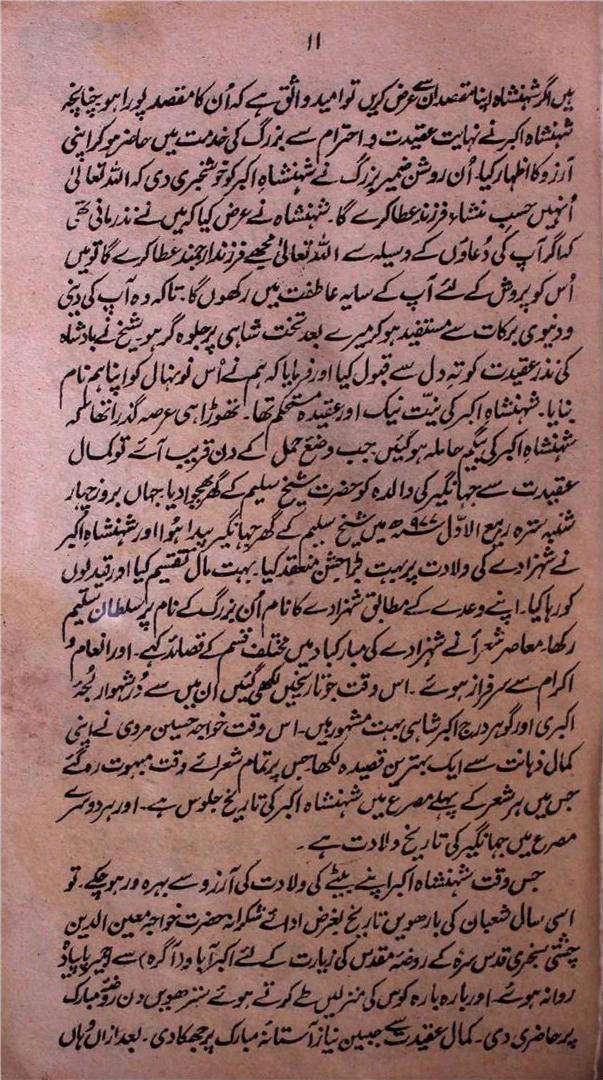 ۱۱
ہیں اگر شہنشاہ اپنا مقصد ان سے عرض کریں تو امید واثق ہے کہ اُن کا مقصد پورا ہو چنانچہ
شہنشاہ اکبر نے نہایت عقیدت و احترام سے بزرگ کی خدمت میں حاضر ہو کر اپنی
آرزو کا اظہار کیا۔ اُن روشن ضمیر بزرگ نے شہنشاہِ اکبر کو خوشخبری دی کہ اللہ تعالیٰ
اُنہیں حسب منشاء فرزند عطا کرے گا۔ شہنشاہ نے عرض کیا کہ میں نے نذر مانی تھی
کہ اگر آپ کی دُعاؤں کے وسیلہ سے اللہ تعالیٰ مجھے فرزند ارجمند عطا کرے گا تو میں
اُس کو پروش کے لئے آپ کے سایہ عاطفت میں رکھوں گا۔ تاکہ وہ آپ کی دینی
و دنیوی برکات سے مستفید ہو کر میرے بعد تخت شاہی پر جلوہ گر ہو۔ شیخ نے بادشاہ
کی نذر عقیدت کو تہ دل سے قبول کیا اور فرمایا کہ ہم نے اُس نونہال کو اپنا ہم نام
بنایا۔ شہنشاہِ اکبر کی نیت نیک اور عقیدہ مستحکم تھا۔ تھوڑا ہی عرصہ گذرا تھا کہ
شہنشاہِ اکبر کی بیگم حاملہ ہو گئیں جب وضع حمل کے دن قریب آئے تو کمال
عقیدت سے جہانگیر کی والدہ کو حضرت شیخ سلیم کے گھر بھجوا دیا۔ جہاں بروز چہار
شنبہ سترہ ربیع الاوّل ۹۷۷ھ میں شیخ سلیم کے گھر جہانگیر پیدا ہُوا اور شہنشاہِ اکبر
نے شہزادے کی ولادت پر بہت بڑا جشن منعقد کیا۔ بہت مال تقسیم کیا اور قیدیوں
کو رہا کیا۔ اپنے وعدے کے مطابق شہزادے کا نام اُن بزرگ کے نام پر سلطان سلیم
رکھا۔ معاصر شعراء نے شہزادے کی مبارکباد میں مختلف قسم کے قصائد کہے۔ اور انعام و
اکرام سے سرفراز ہوئے۔ اس وقت جو تاریخیں لکھی گئیں ان میں سے دُر شہوار لُجۂ
اکبری اور گوہر درج اکبر شاہی بہت مشہور ہیں۔ اس وقت خواجہ حسین مروی نے اپنی
کمال ذہانت سے ایک بہترین قصیدہ لکھا جس پر تمام شعرائے وقت مبہوت رہ گئے
جس میں ہر شعر کے پہلے مصرع میں شہنشاہ اکبر کی تاریخ جلوس ہے۔ اور ہر دوسرے
مصرع میں جہانگیر کی تاریخ ولادت ہے۔
جس وقت شہنشاہ اکبر اپنے بیٹے کی ولادت کی آرزو سے بہرہ ور ہو چکے۔ تو
اسی سال شعبان کی بارھویں تاریخ بغرض ادائے شکرانہ حضرت خواجہ معین الدین
چشتی سنجری قدس سرہٗ کے روضہ مقدس کی زیارت کے لئے اکبر آباد (آگرہ) سے اجمیر پا پیادہ
روانہ ہوئے۔ اور بارہ بارہ کوس کی منزلیں طے کرتے ہوئے سترھویں دن روضۂ مبارک
پر حاضری دی۔ کمال عقیدت سے جبین نیاز آستانہ مبارک پر جھکا دی۔ بعد ازاں وہاں